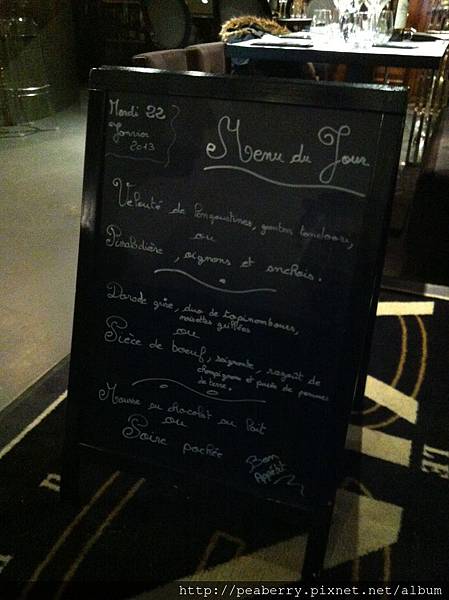 Mardi 22
Janvier
2013
Menu du Jour
Velouté de langoustines, gambas tandoori,
ou
Pissaladière, oignons et anchois.
Dorade grise, duo de topinambours,
noisettes grillées
ou
Pièce de boeuf, saignante, ragoût de
champignon et purée de pommes
de terre.
Mousse au chocolat au lait
ou
Poire pochée
Bon
Appétit
http://peaberry.pixnet.net/album